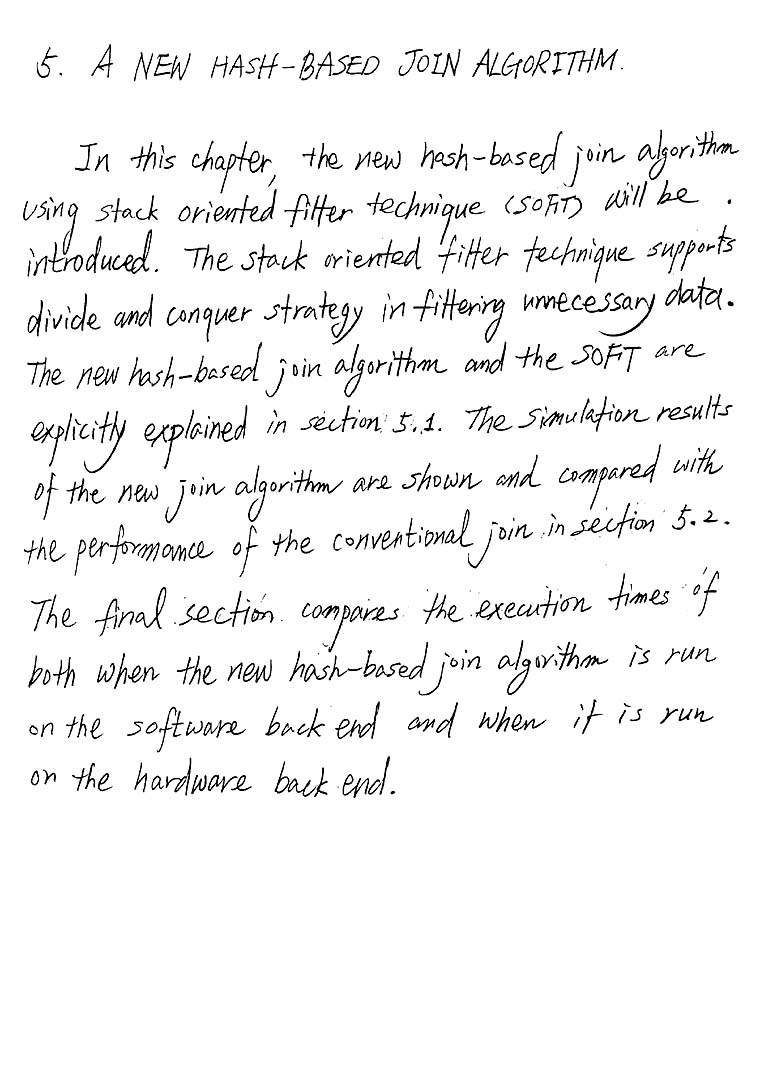 5. A NEW HASH-BASED JOIN ALGORITHM.
In this chapter, the new hash-based join algorithm
using stack oriented filter technique (SOFiT) will be .
introduced. The stack oriented filter technique supports
divide and conquer strategy in filtering unnecessary data.
The new hash-based join algorithm and the SOFiT are
explicitly explained in section 5.1. The simulation results
of the new join algorithm are shown and compared with
the performance of the conventional join in section 5.2.
The final section compares the execution times of
both when the new hash-based join algorithm is run
on the software back end and when it is run
on the hardware back end.